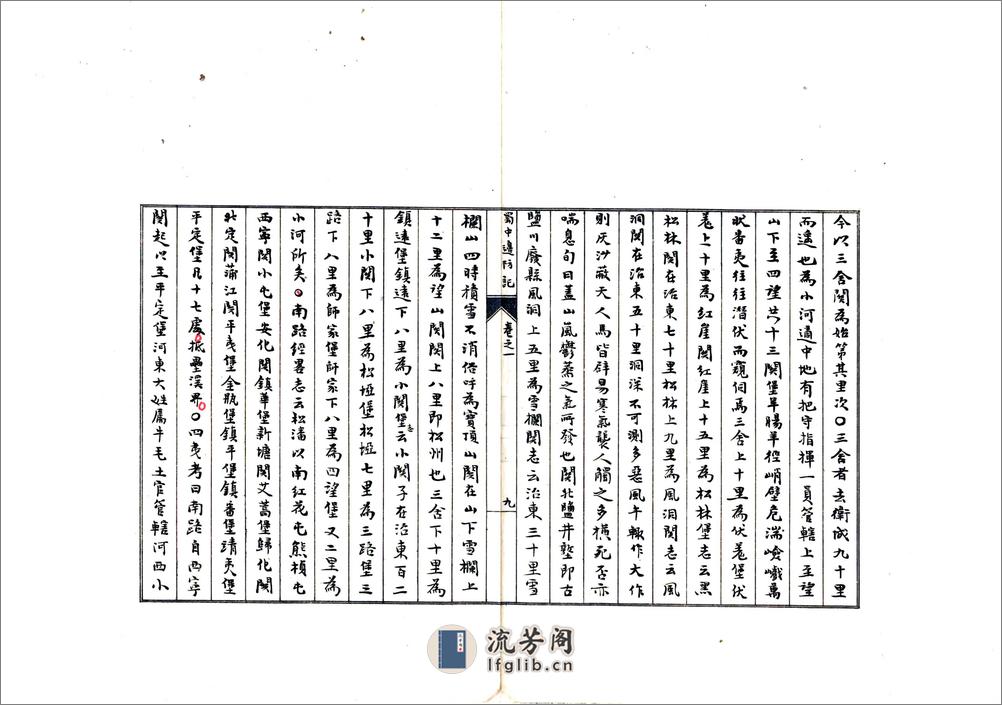 今以三舍関為始第其里次〇三舍者去衛城九十里
而遥也為小河通中地有把守指揮一員管轄上至望
山下至四望共十三関堡羊腸羊徑峭壁危湍嶮巇萬
狀畨夷往往潜伏而窺伺焉三舍上十里為伏羗堡伏
羗上十里為紅崖関紅崖上十五里為松林堡志云黑
松林関在治東七十里松林上九里為風洞関志云風
洞関在治東五十里洞深不可測多惡風午輙作大作
則灰沙蔽天人馬皆辟易寒氣襲人觸之多横死否亦
喘息旬日盖山嵐鬱蒸之氣所發也関北鹽井墪即古
鹽川廢縣風洞上五里為雪欄関志云治東三十里雪
蜀中邉防記
卷之一
九
欄山四時積雪不消俗呼為寳頂山関在山下雪欄上
十二里為望山関関上八里即松州也三舍下十里為
鎮遠堡鎮遠下八里為小関堡志云小関子在治東百二
十里小関下八里為松埡堡松埡七里為三路堡三
路下八里為師家堡師家下八里為四望堡又二里為
小河所矣〇南路經畧志云松潘以南紅花屯熊槙屯
西寧関小屯堡安化関鎮華堡新塘関艾蒿堡歸化関
北定関蒲江関平夷堡金瓶堡鎮平堡鎮番堡靖夷堡
平定堡凡十七處抵壘溪界〇四夷考曰南路自西寧
関起以至平定堡河東大姓屬牛毛土官管轄河西小
流芳阁
lfglib.cn